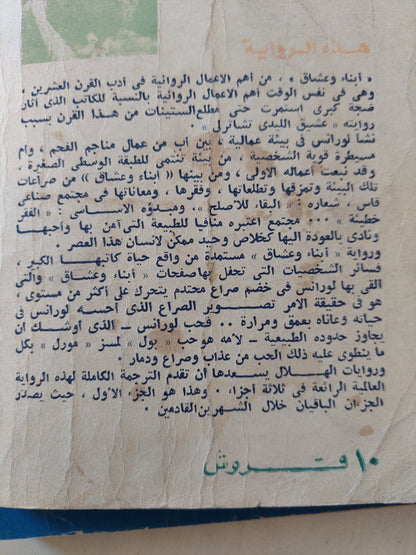 هذه الرواية
« أبناء وعشاق » ، من أهم الاعمال الروائية فى أدب القرن العشرين ،
وهى فى نفس الوقت أهم الاعمال الروائية بالنسبة للكاتب الذى أثار
ضجة كبرى استمرت حتى مطلع الستينات من هذا القرن بسبب
روايته « عشيق الليدى تشاترلى » .
نشأ لورانس فى بيئة عمالية ، بين أب من عمال مناجم الفحم ، وام
مسيطرة قوية الشخصية ، من بيئة تنتمى للطبقة الوسطى الصغيرة ،
وقد نبعت أعماله الاولى ، ومن بينها « أبناء وعشاق » من صراعات
تلك البيئة وتمزقها وتطلعاتها ، وفقرها ، ومعاناتها فى مجتمع صناعى
قاس ، شعاره : « البقاء للأصلح » .. ومبدؤه الاساسى : « الفقر
خطيئة » ... مجتمع اعتبره منافيا للطبيعة التى آمن بها وأحبها
ونادى بالعودة اليها كخلاص وحيد ممكن لانسان هذا العصر .
ورواية « أبناء وعشاق » مستمدة من واقع حياة كاتبها الكبير ،
فسائر الشخصيات التى تحفل بها صفحات « أبناء وعشاق » والتى
القى بها لورانس فى خضم صراع محتدم يتحرك على أكثر من مستوى ،
هو فى حقيقة الامر تصوير الصراع الذى أحسه لورانس فى
حياته وعاناه بعمق ومرارة .. فحب لورانس - الذى أوشك ان
يجاوز حدوده الطبيعية - لامه هو حب « بول » لمسز « مورل » بكل
ما ينطوى عليه ذلك الحب من عذاب وصراع ودمار .
وروايات الهلال يسعدها أن تقدم الترجمة الكاملة لهذه الرواية
العالمية الرائعة فى ثلاثة أجزاء . وهذا هو الجزء الاول ، حيث يصدر
الجزءان الباقيان خلال الشهرين القادمين .
١٠ قروش